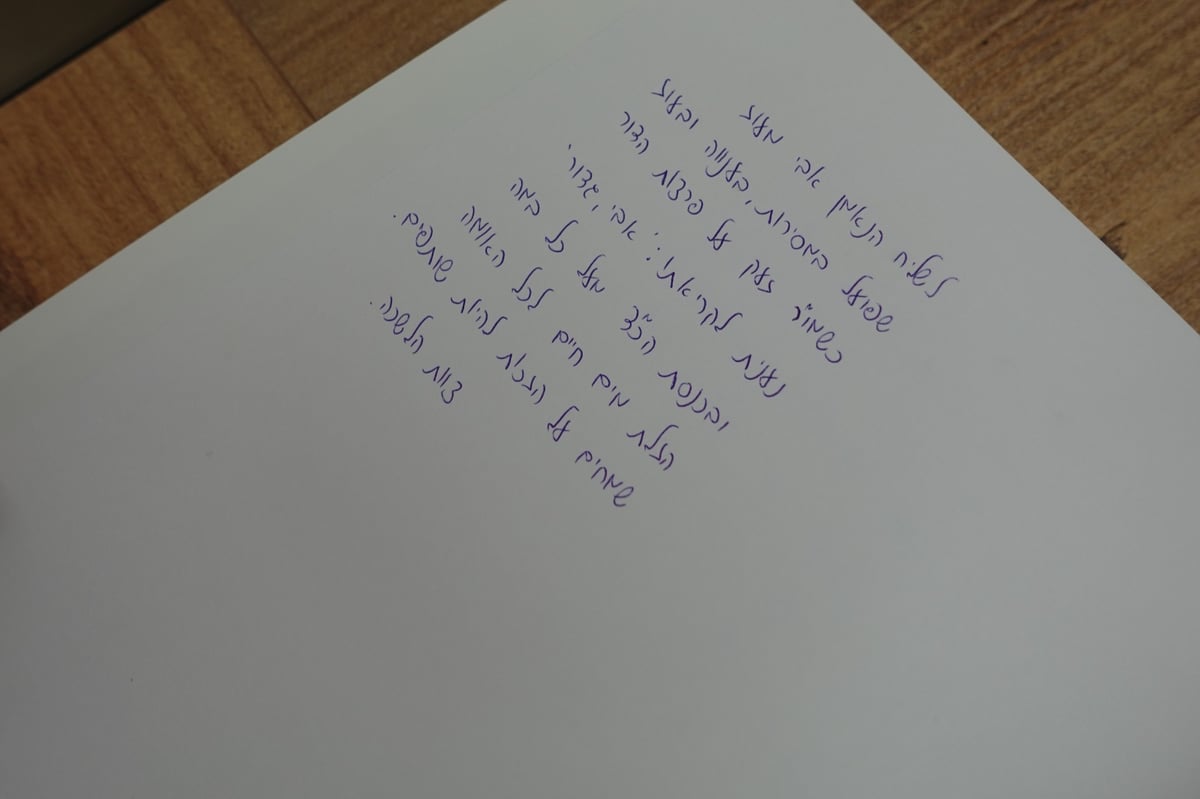 לשליח הנאמן אבי מעוז
שפועל במסירות, בענווה ובעוז
כשמו"ר זעק על פרצות הדור
נענית לקריאתו: אבי, גדור!
ובכנסת הכ"ד מעל כל במה
הזלת מים חיים לכל האומה
שמחים על הזכות להיות שותפים.
צוות הלשכה.